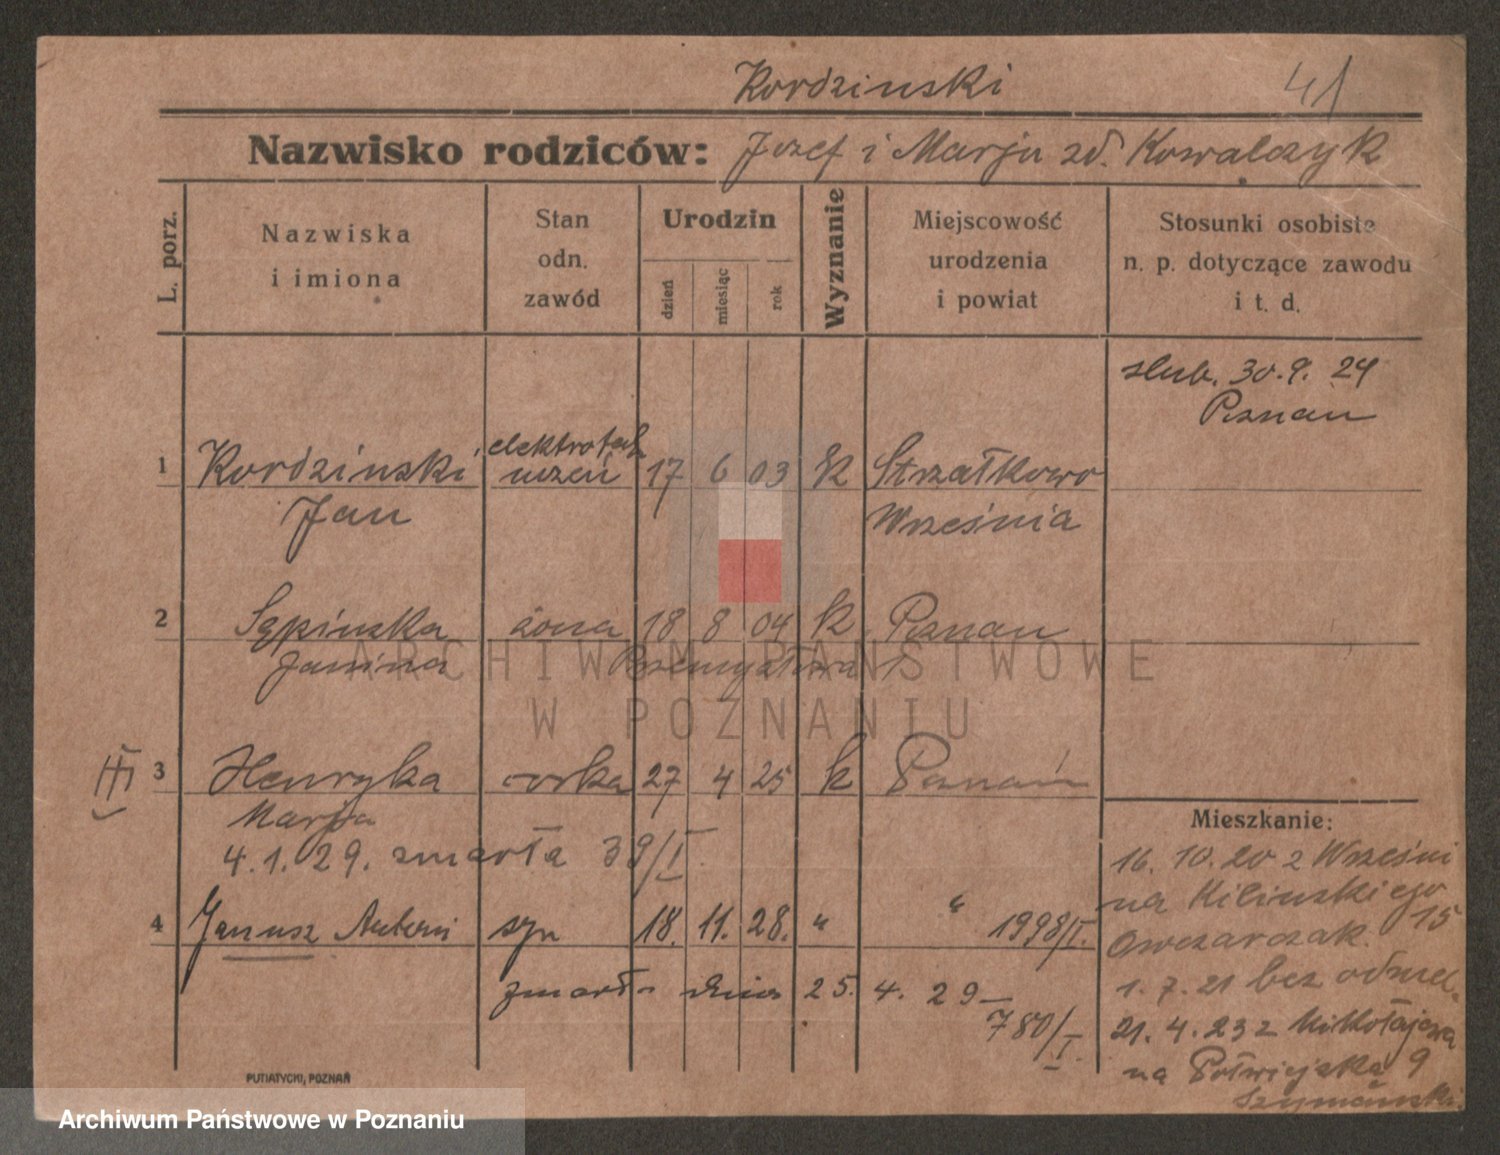 Kordzinski 41
Nazwisko rodziców: Jozef i Marja zd. Kowalczyk
L. porz.
Nazwiska i imiona
Stan odn. zawód
Urodzin
dzień miesiąc rok
Wyznanie
Miejscowość urodzenia i powiat
Stosunki osobiste n. p. dotyczące zawodu i t. d.
slub. 30.9.24
Poznan
elektrotech
1 Kordzinski uczeń 17 6 03 k Strzałkowo
Jan Września
2 Sępinska żona 18 8 04 k Poznan
Janina
III 3 Henryka corka 27 4 25 k Poznań
Marja
4.1.29. zmarła 39/I.
4 Janusz Antoni syn 18. 11. 28. " " 1998/I.
zmarł dnia 25. 4. 29 —
780/I.
Mieszkanie:
16. 10. 20 z Wrześni
na Kilinskiego 15
Owczarczak.
1. 7. 21 bez odmel.
21. 4. 23 z
na Półwiejska 9
Szymański
PUTIATYCKI, POZNAŃ
ARCHIWUM PAŃSTWOWE
W POZNANIU
Archiwum Państwowe w Poznaniu